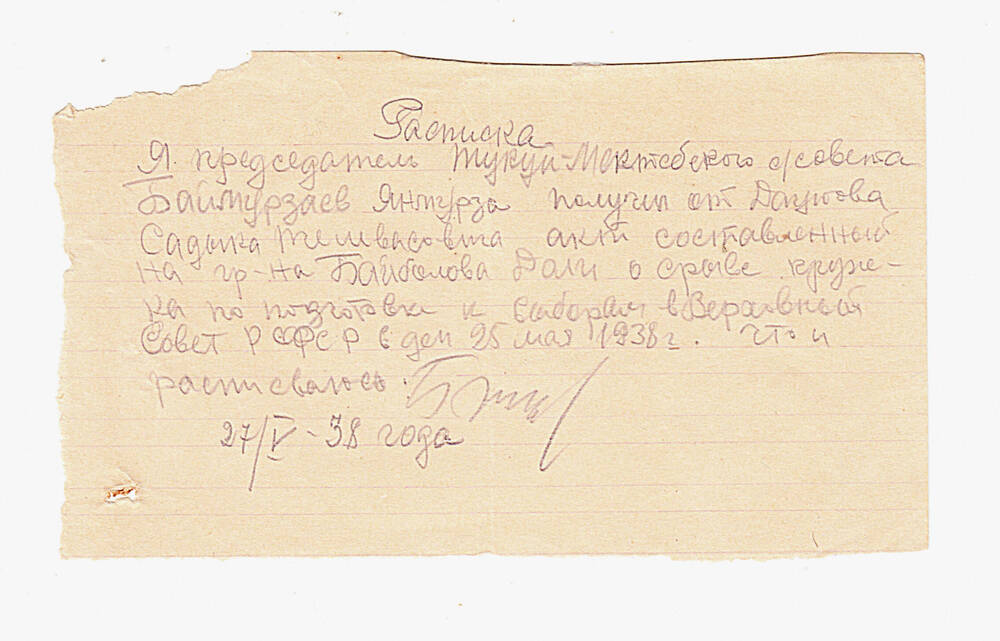 Расписка
Я председатель Тукуй-Мектебского с/совета
Баймурзаев Янмурза получил от Даутова
Садыка акт составленный
на гр-на Байболова Доли о срыве круж-
ка по подготовки к выборам в Верховный
Совет РСФСР в ден 25 мая 1938 г. Что и
расписваюсь.
27/V-38 года